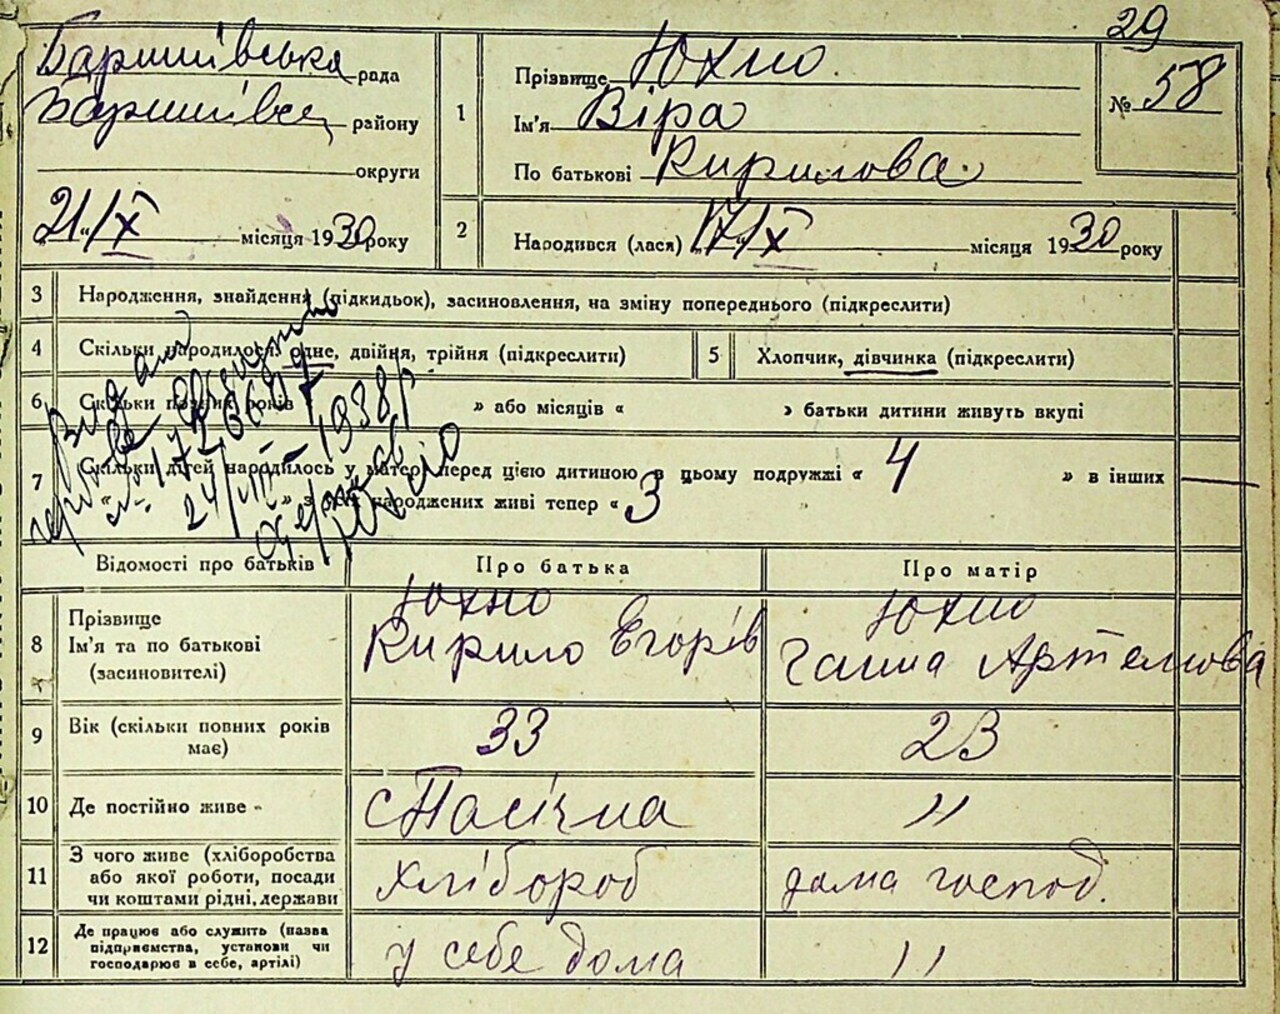 29
Баришівська рада
Баришівськ району
округи
21 "/X місяця 1930 року
1
Прізвище Юхно
Ім'я Віра
По батькові Кирилова
№ 58
2
Народився (лася) 17"/X місяця 1930 року
3 Народження, знайдення (підкидьок), засиновлення, на зміну попереднього (підкреслити)
4 Скільки народилося, одне, двійня, трійня (підкреслити)
5 Хлопчик, дівчинка (підкреслити)
6 Скільки повних років « » або місяців « » батьки дитини живуть вкупі
7 Скільки дітей народилось у матері перед цією дитиною в цьому подружжі « 4 » в інших —
« » з усіх народжених живі тепер « 3
№ 172
24/III – 1938 р.
Відомості про батьків
Про батька
Про матір
8
Прізвище
Ім'я та по батькові
(засиновителі)
Юхно
Кирило Єгорів
Юхно
Ганна Артемова
9
Вік (скільки повних років
має)
33
23
10 Де постійно живе -
с Пасічна
"
11
З чого живе (хліборобства
або якої роботи, посади
чи коштами рідні, держави
хлібороб
дома господ.
12
Де працює або служить (назва
підприємства, установи чи
господарює в себе, артілі)
у себе дома
"